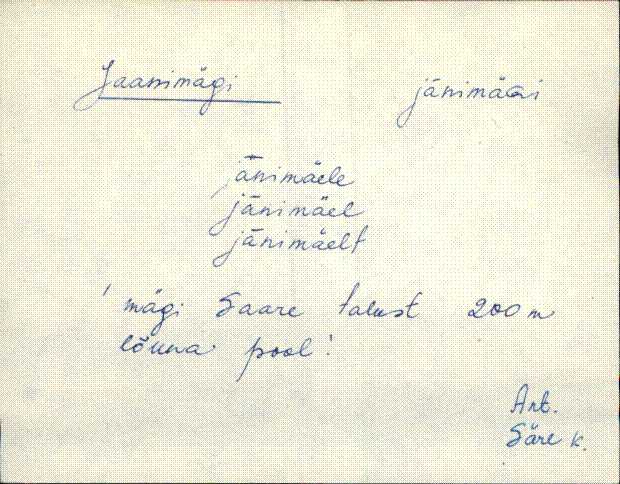 Jaanimägi jānimäGi
jānimäele
jānimäel
jānimäelt
'mägi Saare talust 200 m
lõuna pool'
Ant.
Säre k.